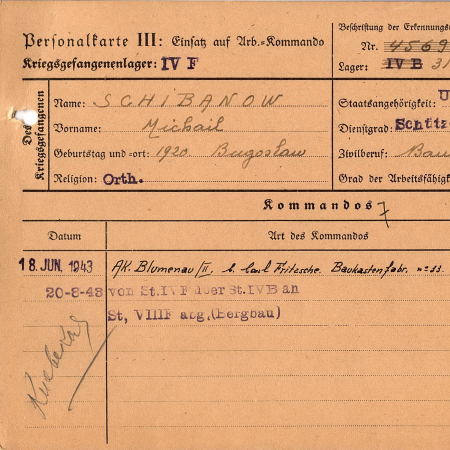 Personalkarte III: Einsatz auf Arb.-Kommando
Kriegsgefangenenlager: IV F
Beschriftung der Erkennungs
Nr. 4569
Lager: IV B 31
Des Kriegsgefangenen
Name: SCHIBANOW
Vorname: Michail
Geburtstag und -ort: 1920. Bugoslaw
Religion: Orth.
Staatsangehörigkeit: U
Dienstgrad: Schütz
Zivilberuf: Bau
Grad der Arbeitsfähigk
Kommandos 7
Datum Art des Kommandos
18. JUN. 1943 AK. Blumenau/II, b. Carl Fritzsche. Baukastenfabr. no 33.
20-8-43 von St.IV F über St.IV B an
St, VIIIF abg.(Bergbau)